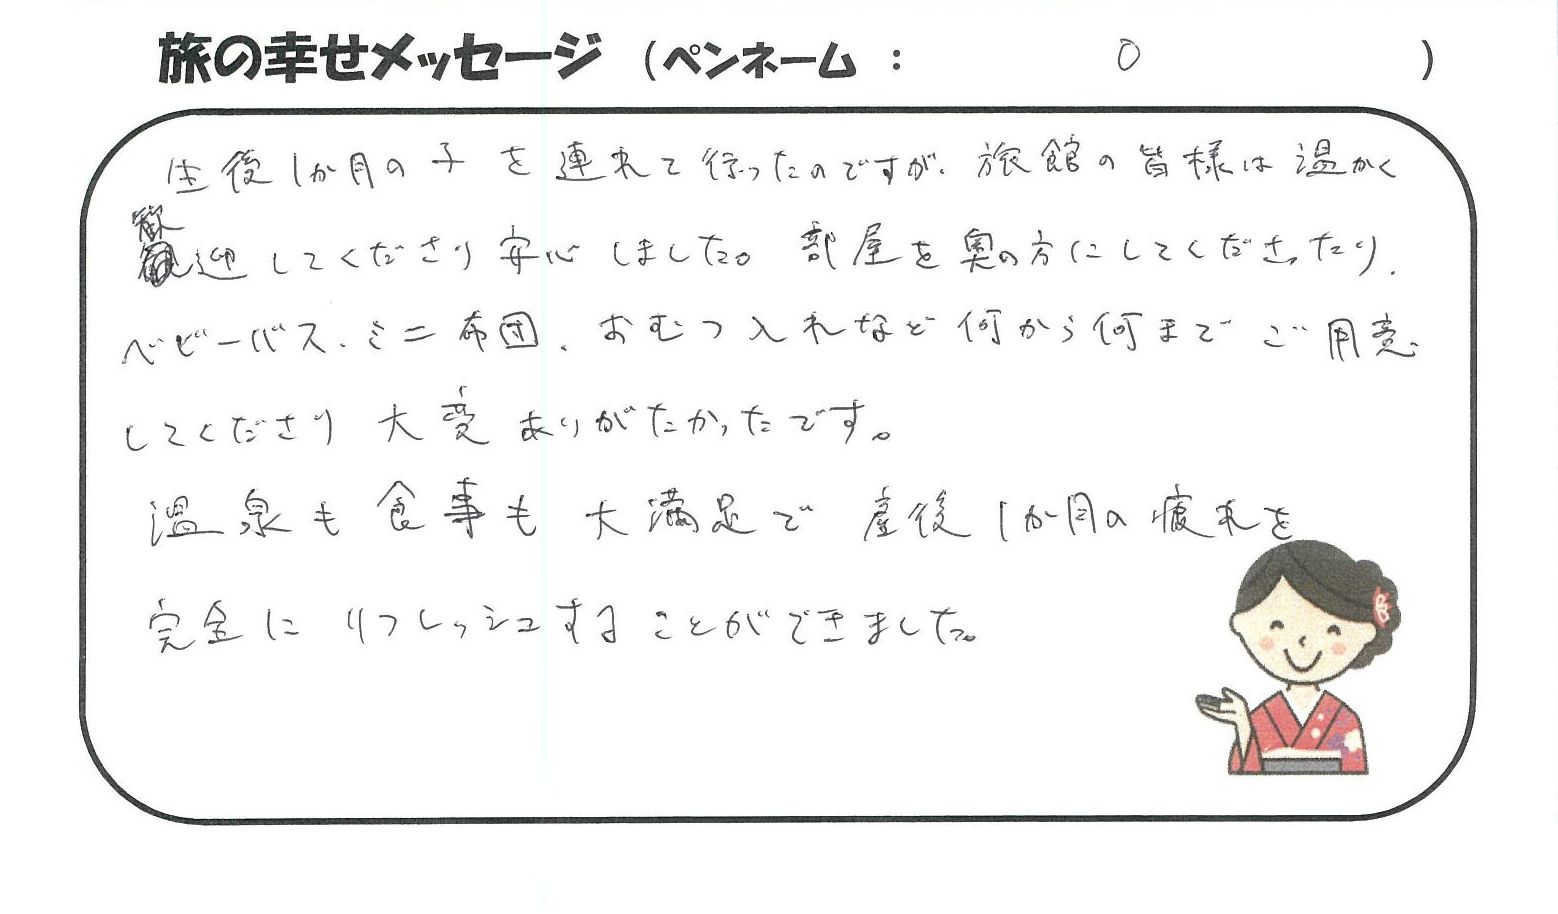 旅の幸せメッセージ (ペンネーム : O )
生後1か月の子を連れて行ったのですが、旅館の皆様は温かく
歓迎してくださり安心しました。部屋を奥の方にしてくださったり、
ベビーバス、ミニ布団、おむつ入れなど何から何までご用意
してくださり大変ありがたかったです。
温泉も食事も大満足で産後1か月の疲れを
完全にリフレッシュすることができました。